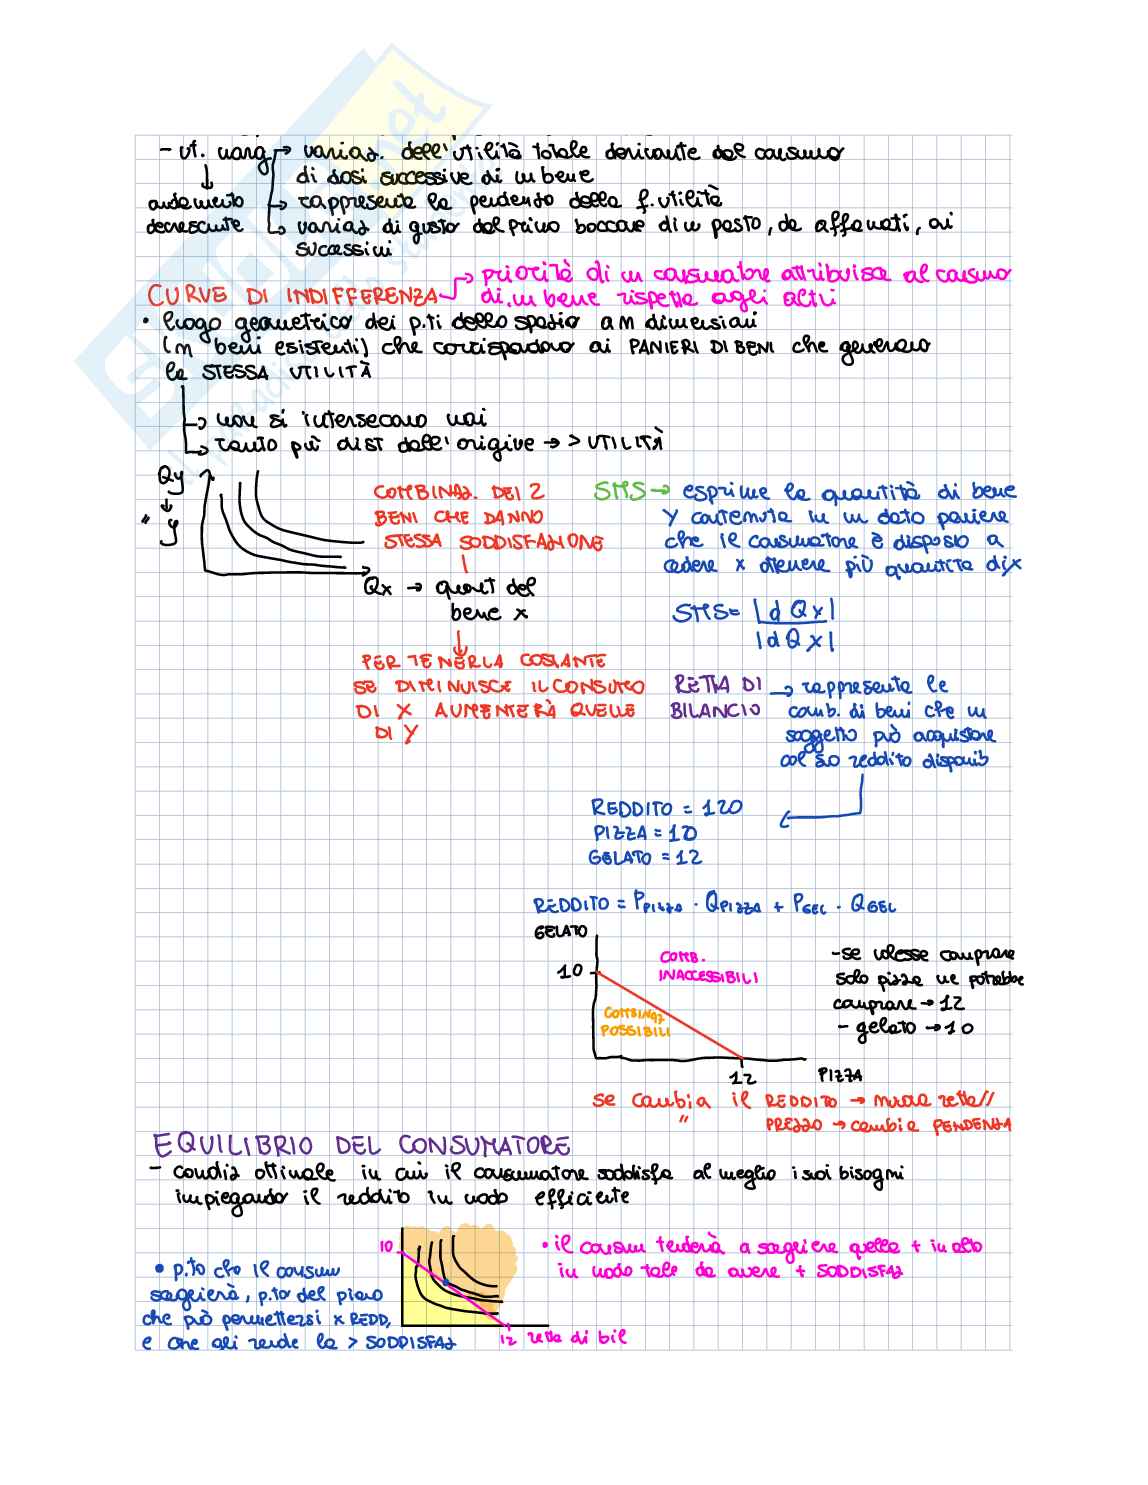 - ut. marg → variaz. dell'utilità totale derivante dal consumo
di dosi successive di un bene
andamento → rappresenta la pendenza della f. utilità
decrescente → variaz di gusto del primo boccone di un pasto, da affamati, ai
successivi
→ priorità di un consumatore attribuisce al consumo
CURVE DI INDIFFERENZA di un bene rispetto agli altri
• luogo geometrico dei p.ti dello spazio a n dimensioni
(n beni esistenti) che corrispondono ai PANIERI DI BENI che generano
la STESSA UTILITÀ
→ non si intersecano mai
→ tanto più dist dall'origine → > UTILITÀ
Qy
" y
COMBINAZ. DEI 2
BENI CHE DANNO
STESSA SODDISFAZIONE
Qx → quant del
bene x
PER TENERLA COSTANTE
SE DIMINUISCE IL CONSUMO
DI X AUMENTERÀ QUELLE
DI Y
SMS → esprime la quantità di bene
Y contenuta in un dato paniere
che il consumatore è disposto a
cedere x ottenere più quantità di x
SMS = |d Qx|
|d Q x|
RETTA DI → rappresenta le
BILANCIO comb. di beni che un
soggetto può acquistare
col suo reddito disponib
REDDITO = 120
PIZZA = 10
GELATO = 12
REDDITO = PPIZZA · QPIZZA + PGEL · QGEL
GELATO
10
COMB.
INACCESSIBILI
COMBINAZ
POSSIBILI
12
PIZZA
- se volesse comprare
solo pizza ne potrebbe
comprare → 12
- gelato → 10
se cambia il REDDITO → nuova retta //
" PREZZO → cambia PENDENZA
EQUILIBRIO DEL CONSUMATORE
- condiz ottimale in cui il consumatore soddisfa al meglio i suoi bisogni
impiegando il reddito in modo efficiente
10
• p.to che il consum
sceglierà, p.to del piano
che può permettersi x REDD,
e che gli rende la > SODDISFAZ
12 retta di bil
• il consum tenderà a scegliere quella + in alto
in modo tale da avere + SODDISFAZ